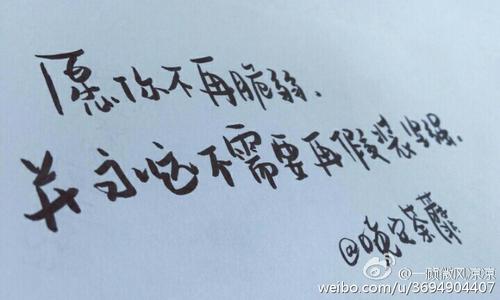 愿你不再脆弱.
并永远不需要再假装坚强.
@晚安荼蘼
微风凉凉
weibo.com/u/3694904407